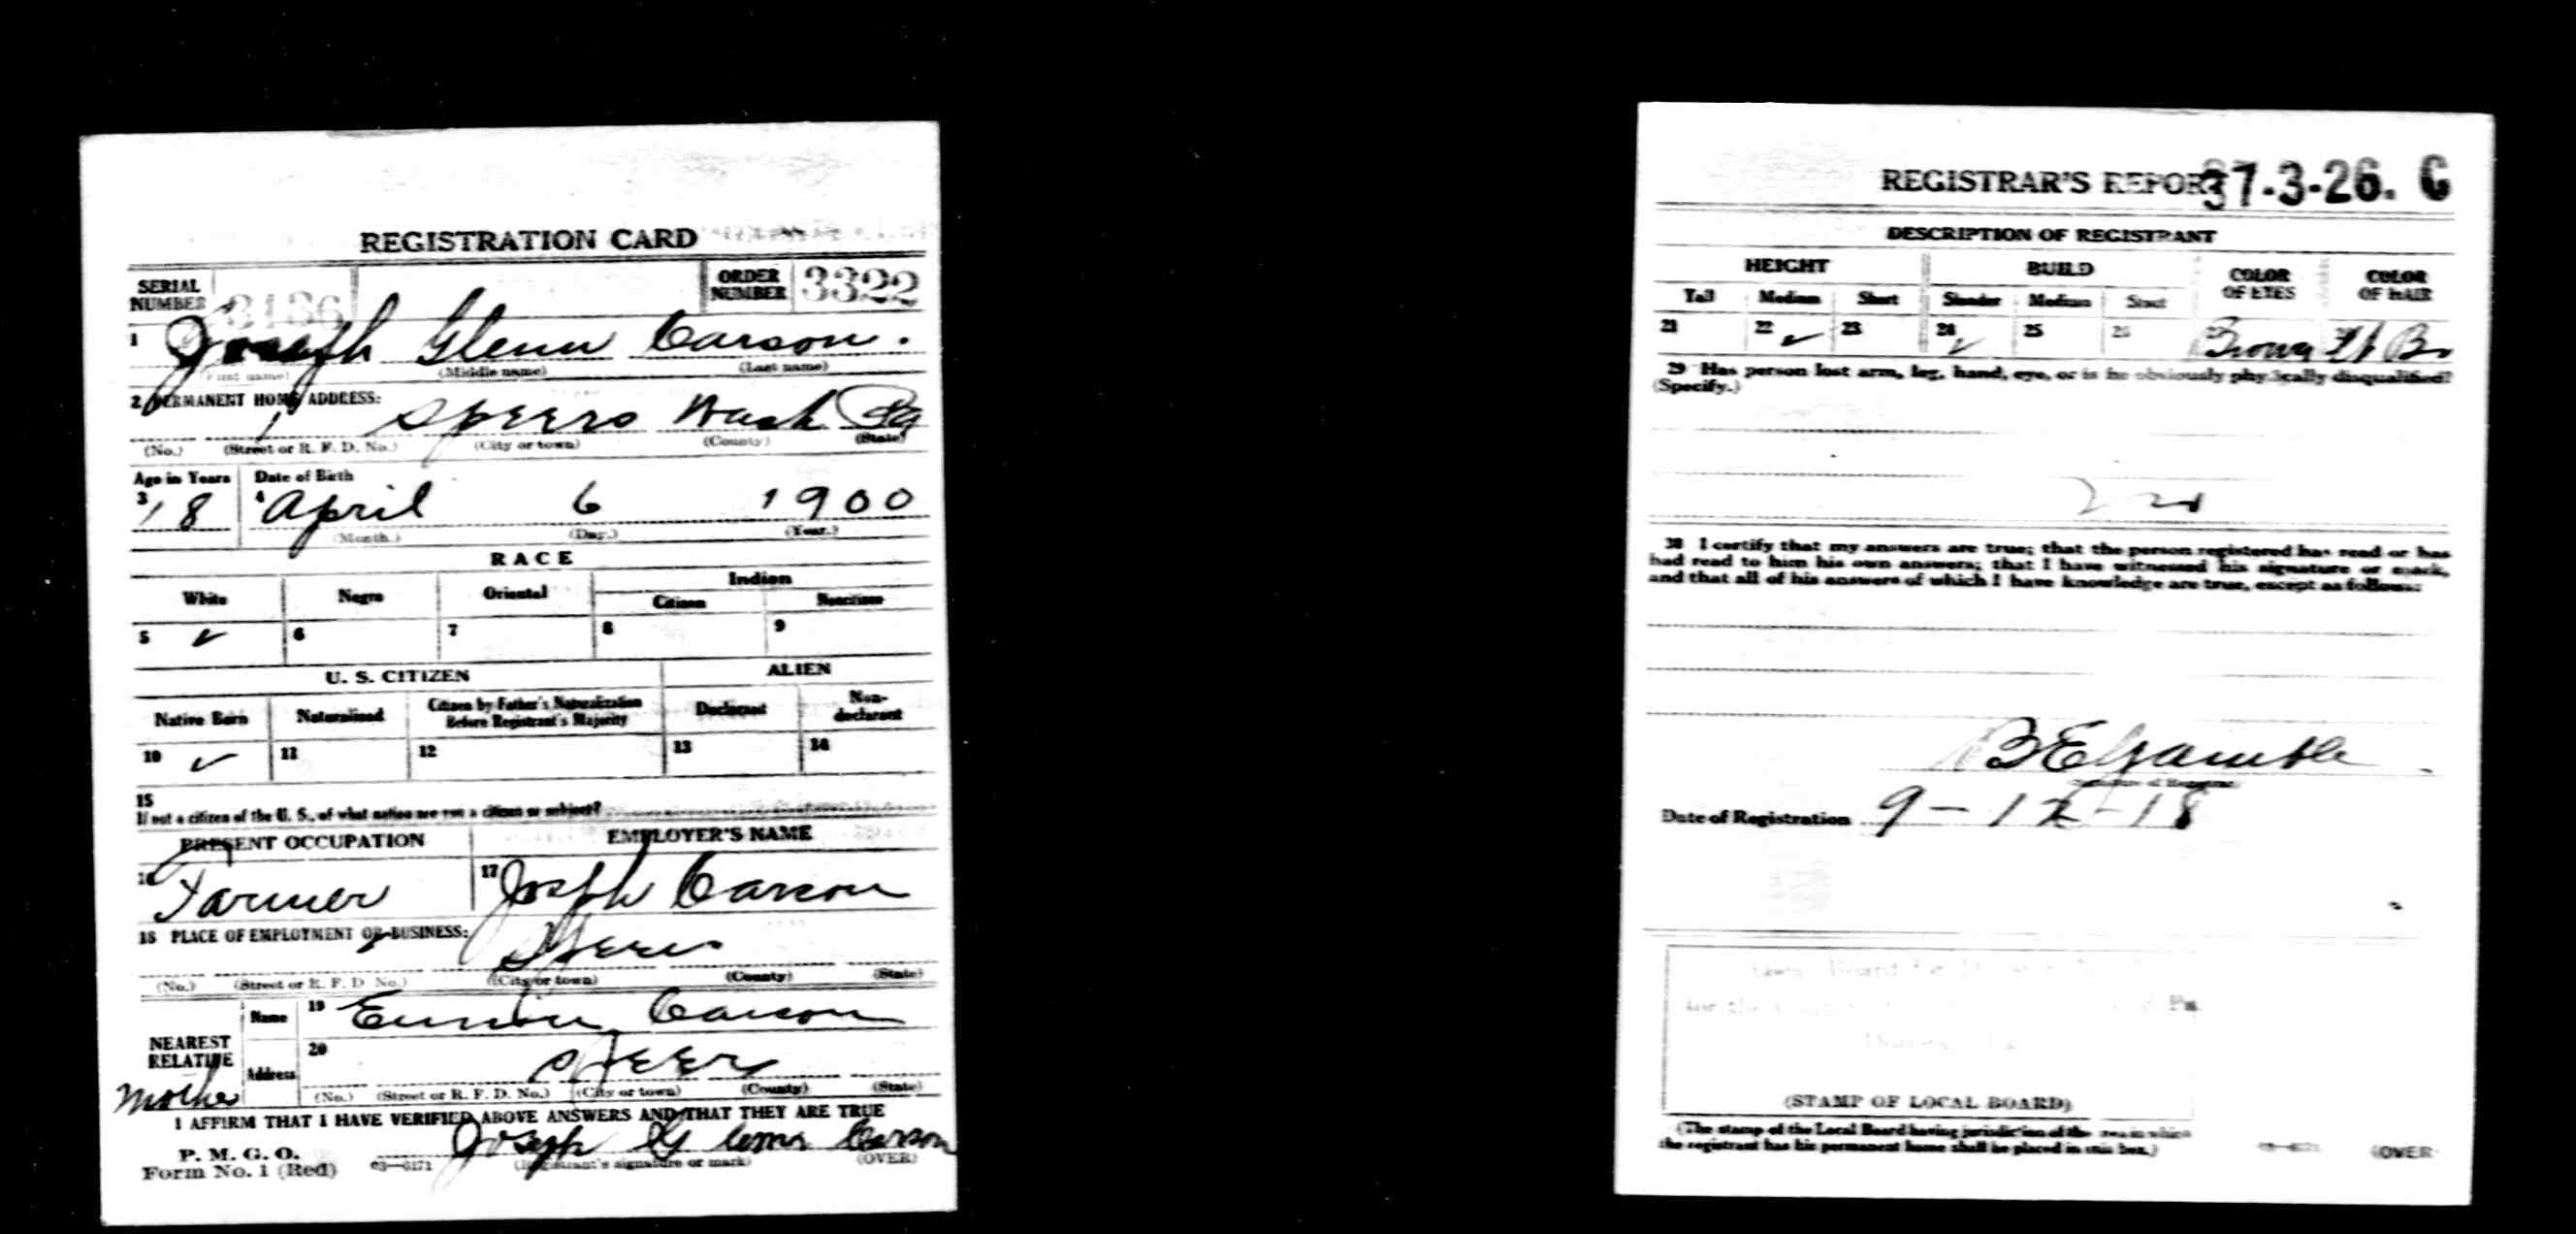 REGISTRATION CARD
SERIAL NUMBER 3136 ORDER NUMBER 3322
1 Joseph Glenn Carson.
(First name) (Middle name) (Last name)
2 PERMANENT HOME ADDRESS:
Speers Wash Pa
(No.) (Street or R. F. D. No.) (City or town) (County) (State)
Age in Years Date of Birth
3 18 4 April 6 1900
(Month.) (Day.) (Year.)
RACE
White Negro Oriental Indian
Citizen Noncitizen
5 ✓ 6 7 8 9
U. S. CITIZEN ALIEN
Native Born Naturalized Citizen by Father's Naturalization Before Registrant's Majority Declarant Non-declarant
10 ✓ 11 12 13 14
15
If not a citizen of the U. S., of what nation are you a citizen or subject?
PRESENT OCCUPATION EMPLOYER'S NAME
16 Farmer 17 Joseph Carson
18 PLACE OF EMPLOYMENT OR BUSINESS:
Speers
(No.) (Street or R. F. D. No.) (City or town) (County) (State)
NEAREST RELATIVE Name 19 Carson
Address 20 Speers
mother
(No.) (Street or R. F. D. No.) (City or town) (County) (State)
I AFFIRM THAT I HAVE VERIFIED ABOVE ANSWERS AND THAT THEY ARE TRUE
P. M. G. O.
Form No. 1 (Red) 03—6171 Joseph Glenn Carson
(Registrant's signature or mark) (OVER)
REGISTRAR'S REPORT 37-3-26. C
DESCRIPTION OF REGISTRANT
HEIGHT BUILD COLOR OF EYES COLOR OF HAIR
Tall Medium Short Slender Medium Stout
21 22 ✓ 23 24 ✓ 25 26 Brown Lt Br
29 Has person lost arm, leg, hand, eye, or is he obviously physically disqualified?
(Specify.)
no
30 I certify that my answers are true; that the person registered has read or has
had read to him his own answers; that I have witnessed his signature or mark,
and that all of his answers of which I have knowledge are true, except as follows:
B E Gamble
(Signature of Registrar)
Date of Registration 9-12-18
(STAMP OF LOCAL BOARD)
(The stamp of the Local Board having jurisdiction of the area in which
the registrant has his permanent home shall be placed in this box.)
03—6171 (OVER)